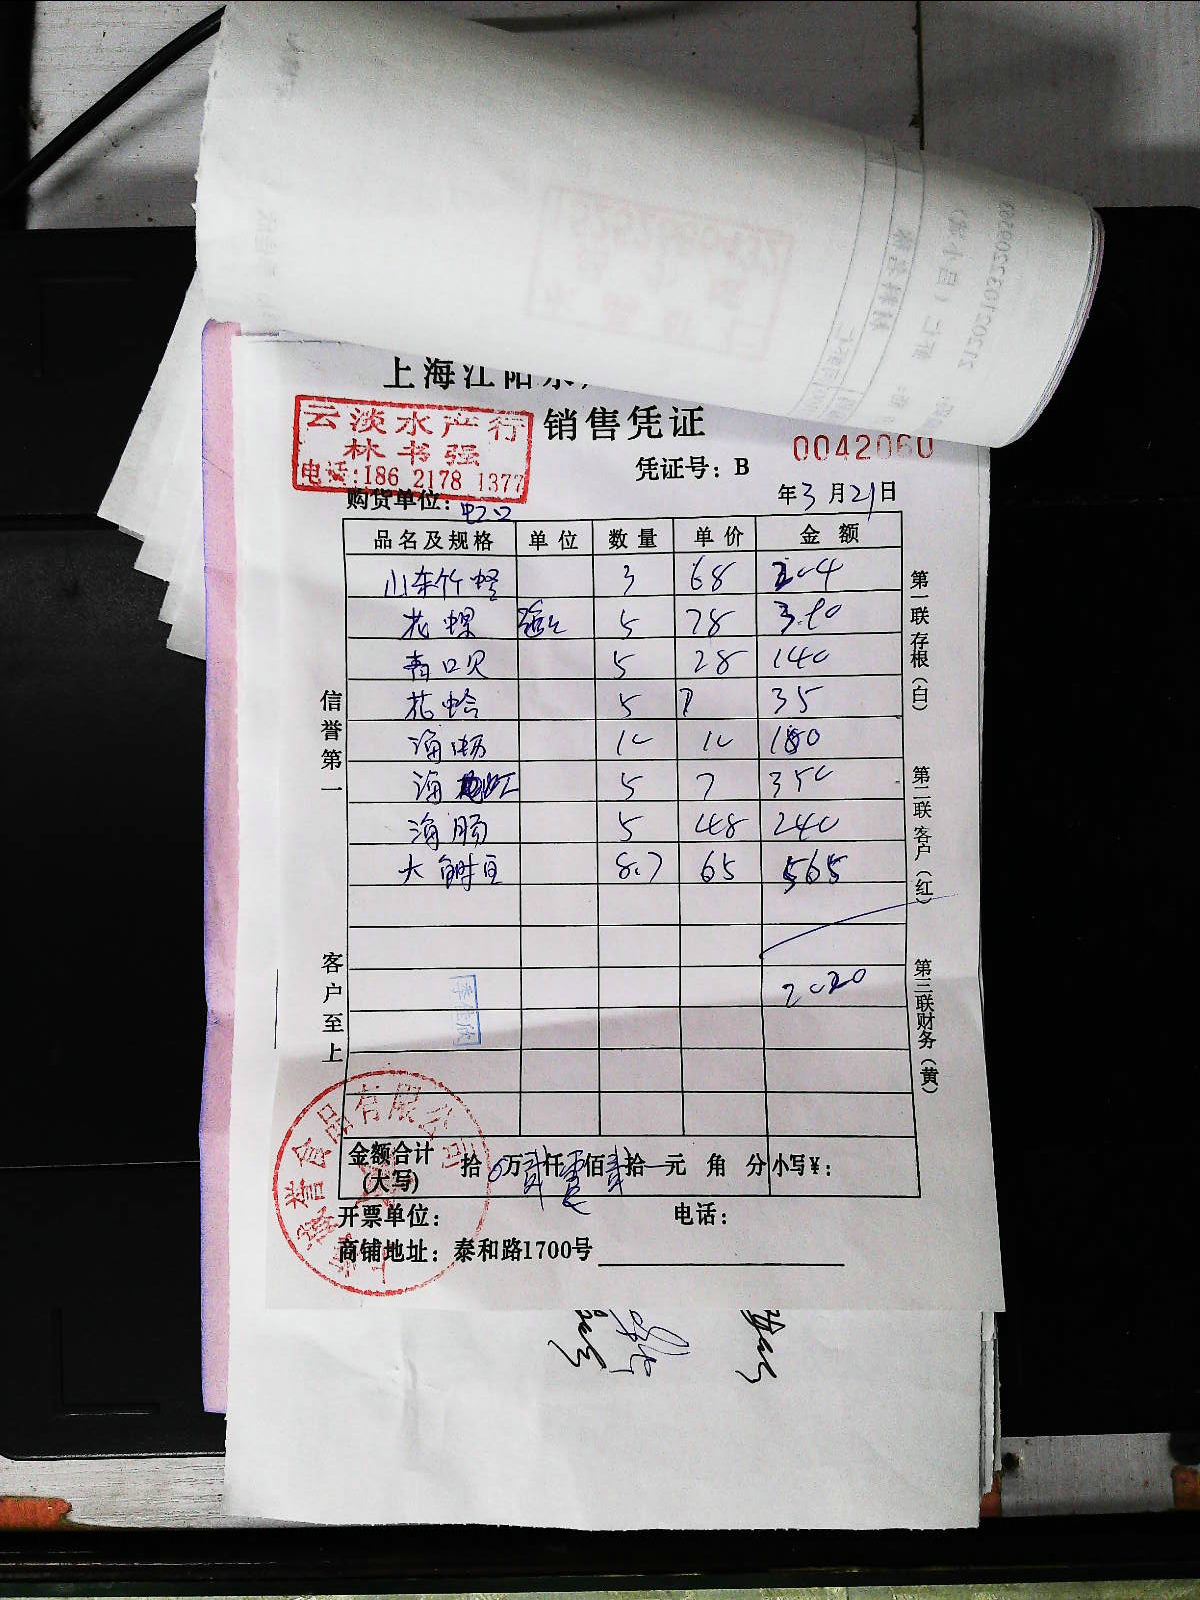 上海江阳水
云淡水产行
林书强
电话:186 2178 1377
销售凭证
0042060
凭证号：B
购货单位：
年3月21日
品名及规格 单位 数量 单价 金额
山东竹蛏 3 68 204
花螺 5 78 390
青口贝 5 28 140
花蛤 5 7 35
海 10 10 100
海虹 5 7 350
海肠 5 48 240
大 8.7 65 565
2020
李佳欣
金额合计
(大写)
拾0万贰仟零佰贰拾 元 角 分 小写¥：
开票单位： 电话：
商铺地址：泰和路1700号
信誉第一
客户至上
第一联存根（白）
第二联客户（红）
第三联财务（黄）
食品有限公司